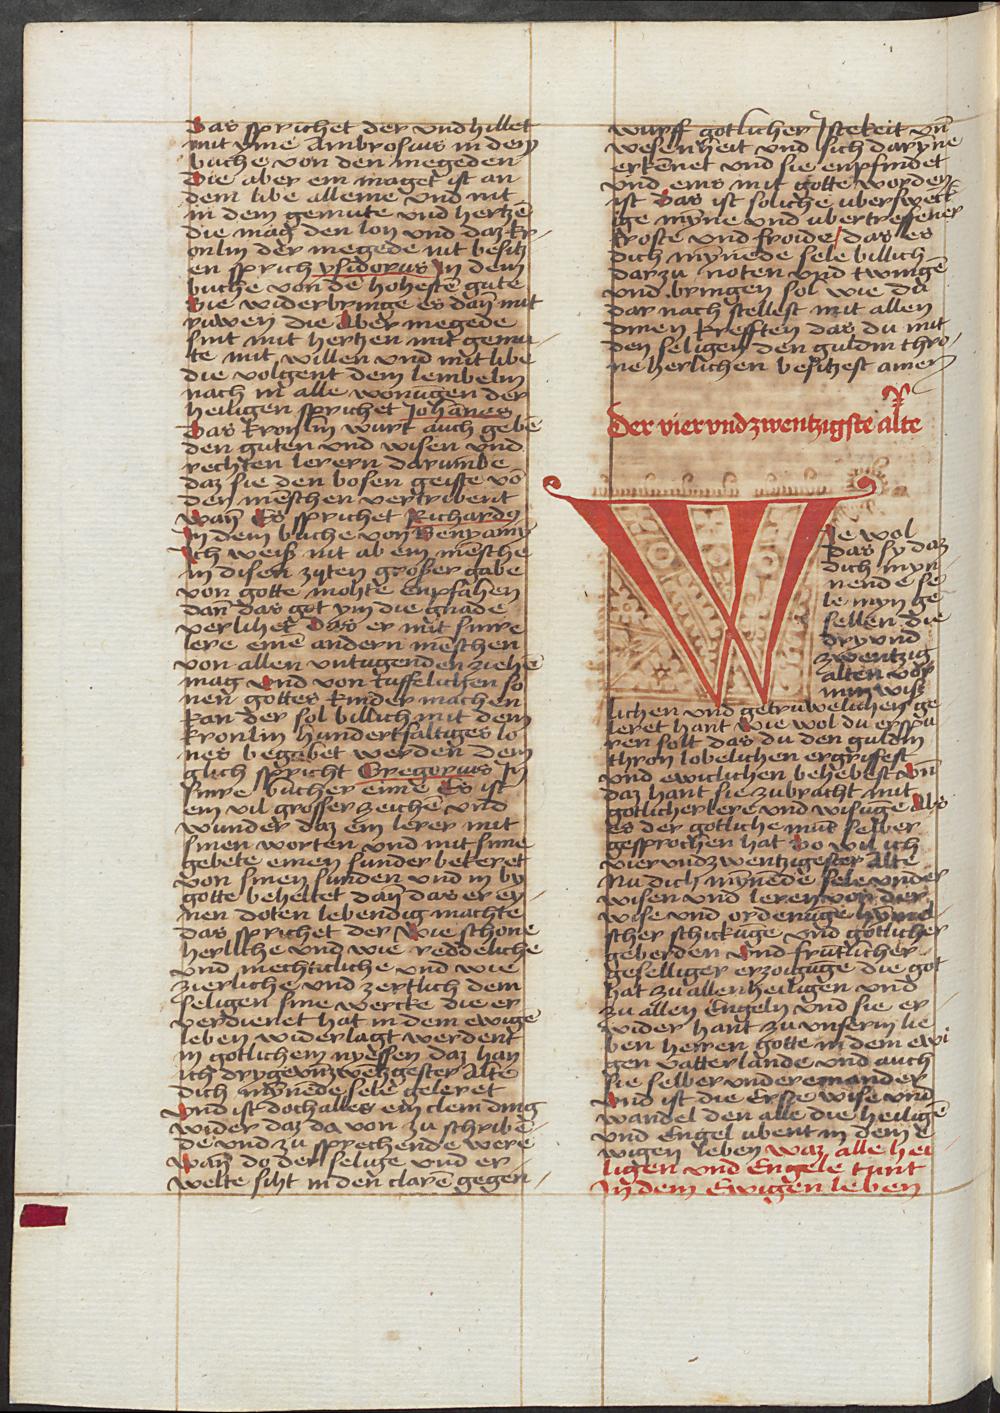 Das sprichet der vnd hillet
mit yme Ambrosius in dem
buche von den megeden
Die aber ein maget ist an
dem libe alleine vnd nit
in dem gemute vnd hertzē
die mag den lon vnd daz kr-
onlin der megede nit besitz
en sprich ysidorus In dem
buche von dē hohestē gute
Sie widerbringe es dan̄ mit
ruwen die Aber megede
sint mit hertzen mit gemu-
te mit willen vnd mit libe
die volgent dem lembelin
nach in alle wonūgen der
heiligen sprichet Johānes
Das kronlin wurt auch gebē
den guten vnd wisen vnd
rechten lerern darumbe
daz sie den bosen geiste vō
der mēschen vertribent
wan̄ Es sprichet Richardus
In dem buche von Benyamy
Ich weiß nit ab ein mēsche
in disen zyten grosser gabe
von gotte mohte enpfahen
dan̄ das got ym die gnade
verlihet Das er mit sinre
lere eine andern mēschen
von allen vntugenden ziehē
mag vnd von tuffelichen so
nen gottes kinder machen
kan der sol billich mit dem
kronlin hundertfaltiges lo
nes begabet werden dem
glich spricht Gregorius In
sinre bucher eime Es ist
ein vil grosser zeichē vnd
wunder daz ein lerer mit
sinen worten vnd mit sime
gebete einen sunder bekeret
von sinen sunden vnd in by
gotte beheltet dan̄ das er ey
nen doten lebendig machte
das sprichet der Wie schone
herlliche vnd wie reddeliche
vnd mechticliche vnd wie
zierliche vnd zertlich dem
seligen sine wercke die er
verdienet hat in dem ewigē
leben widerlagt werdent
in gotlichem nyessen daz han
ich drygevnzwenzgester Alte
dich mȳnēde sele geleret
Vnd ist doch alles ein clein ding
wider daz da von zu schribē
de vnd zu sprechende were
wan̄ do der selige vnd er
welte siht in den clarē gegen
wurff gotlicher Istekeit vn̄
wesenheit vnd sich darȳne
erkēnet vnd sie enpfindet
vnd eins mit gotte worden
ist Das ist soliche uberswenk
ige mȳne vnd ubertreffener
troste vnd froide / das es
dich mȳnēde sele billich
darzu noten vnd twingē
vnd bringen sol wie du
dar nach stellest mit allen
dinen krefften das du mit
den seligen den guldin thro-
ne herlichen besitzest amen
Der vier vnd zwentzigste alte
Wie wol
das sy daz
dich myn
nende se
le myn ge
sellen die
dry vnd
zwentzig
alten vor
min wis
lichen vnd getruwelichen ge
leret hant Wie wol du erspu
ren solt das du den guldin
thron lobelichen ergriffest
vnd ewiclichen behebest Vn̄
daz hant sie zubracht mit
gotlicher lere vnd wisūge Als
es der gotliche mūt selber
gesprochen hat So wil ich
vier vnd zwentzigester Alte
Nu dich mȳnēde sele vnder
wisen vnd leren von der
wise vnd ordenūge hymel
scher schickūge vnd gotlicher
geberden Vnd frūtlicher
geselliger erzougūge die got
hat zu allen heiligen vnd
zu allen Engeln vnd sie er
wider hant zu vnserm lie
ben herren Gotte in dem ewi
gen vatter lande vnd auch
sie selber vnder einander
Vnd ist die Erste wise vnd
wandel den alle die heiligē
vnd Engel ubent in dem e
wigen leben waz alle hei
ligen vnd Engele tunt
In dem Ewigen leben